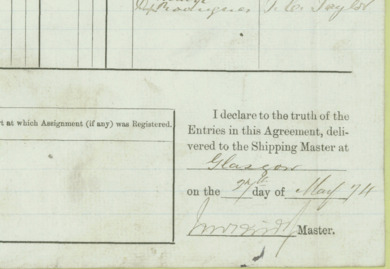 Peter Taylor
rt at which Assignment (if any) was Registered.
I declare to the truth of the
Entries in this Agreement, deli-
vered to the Shipping Master at
Glasgow
on the day of May 74
Master.